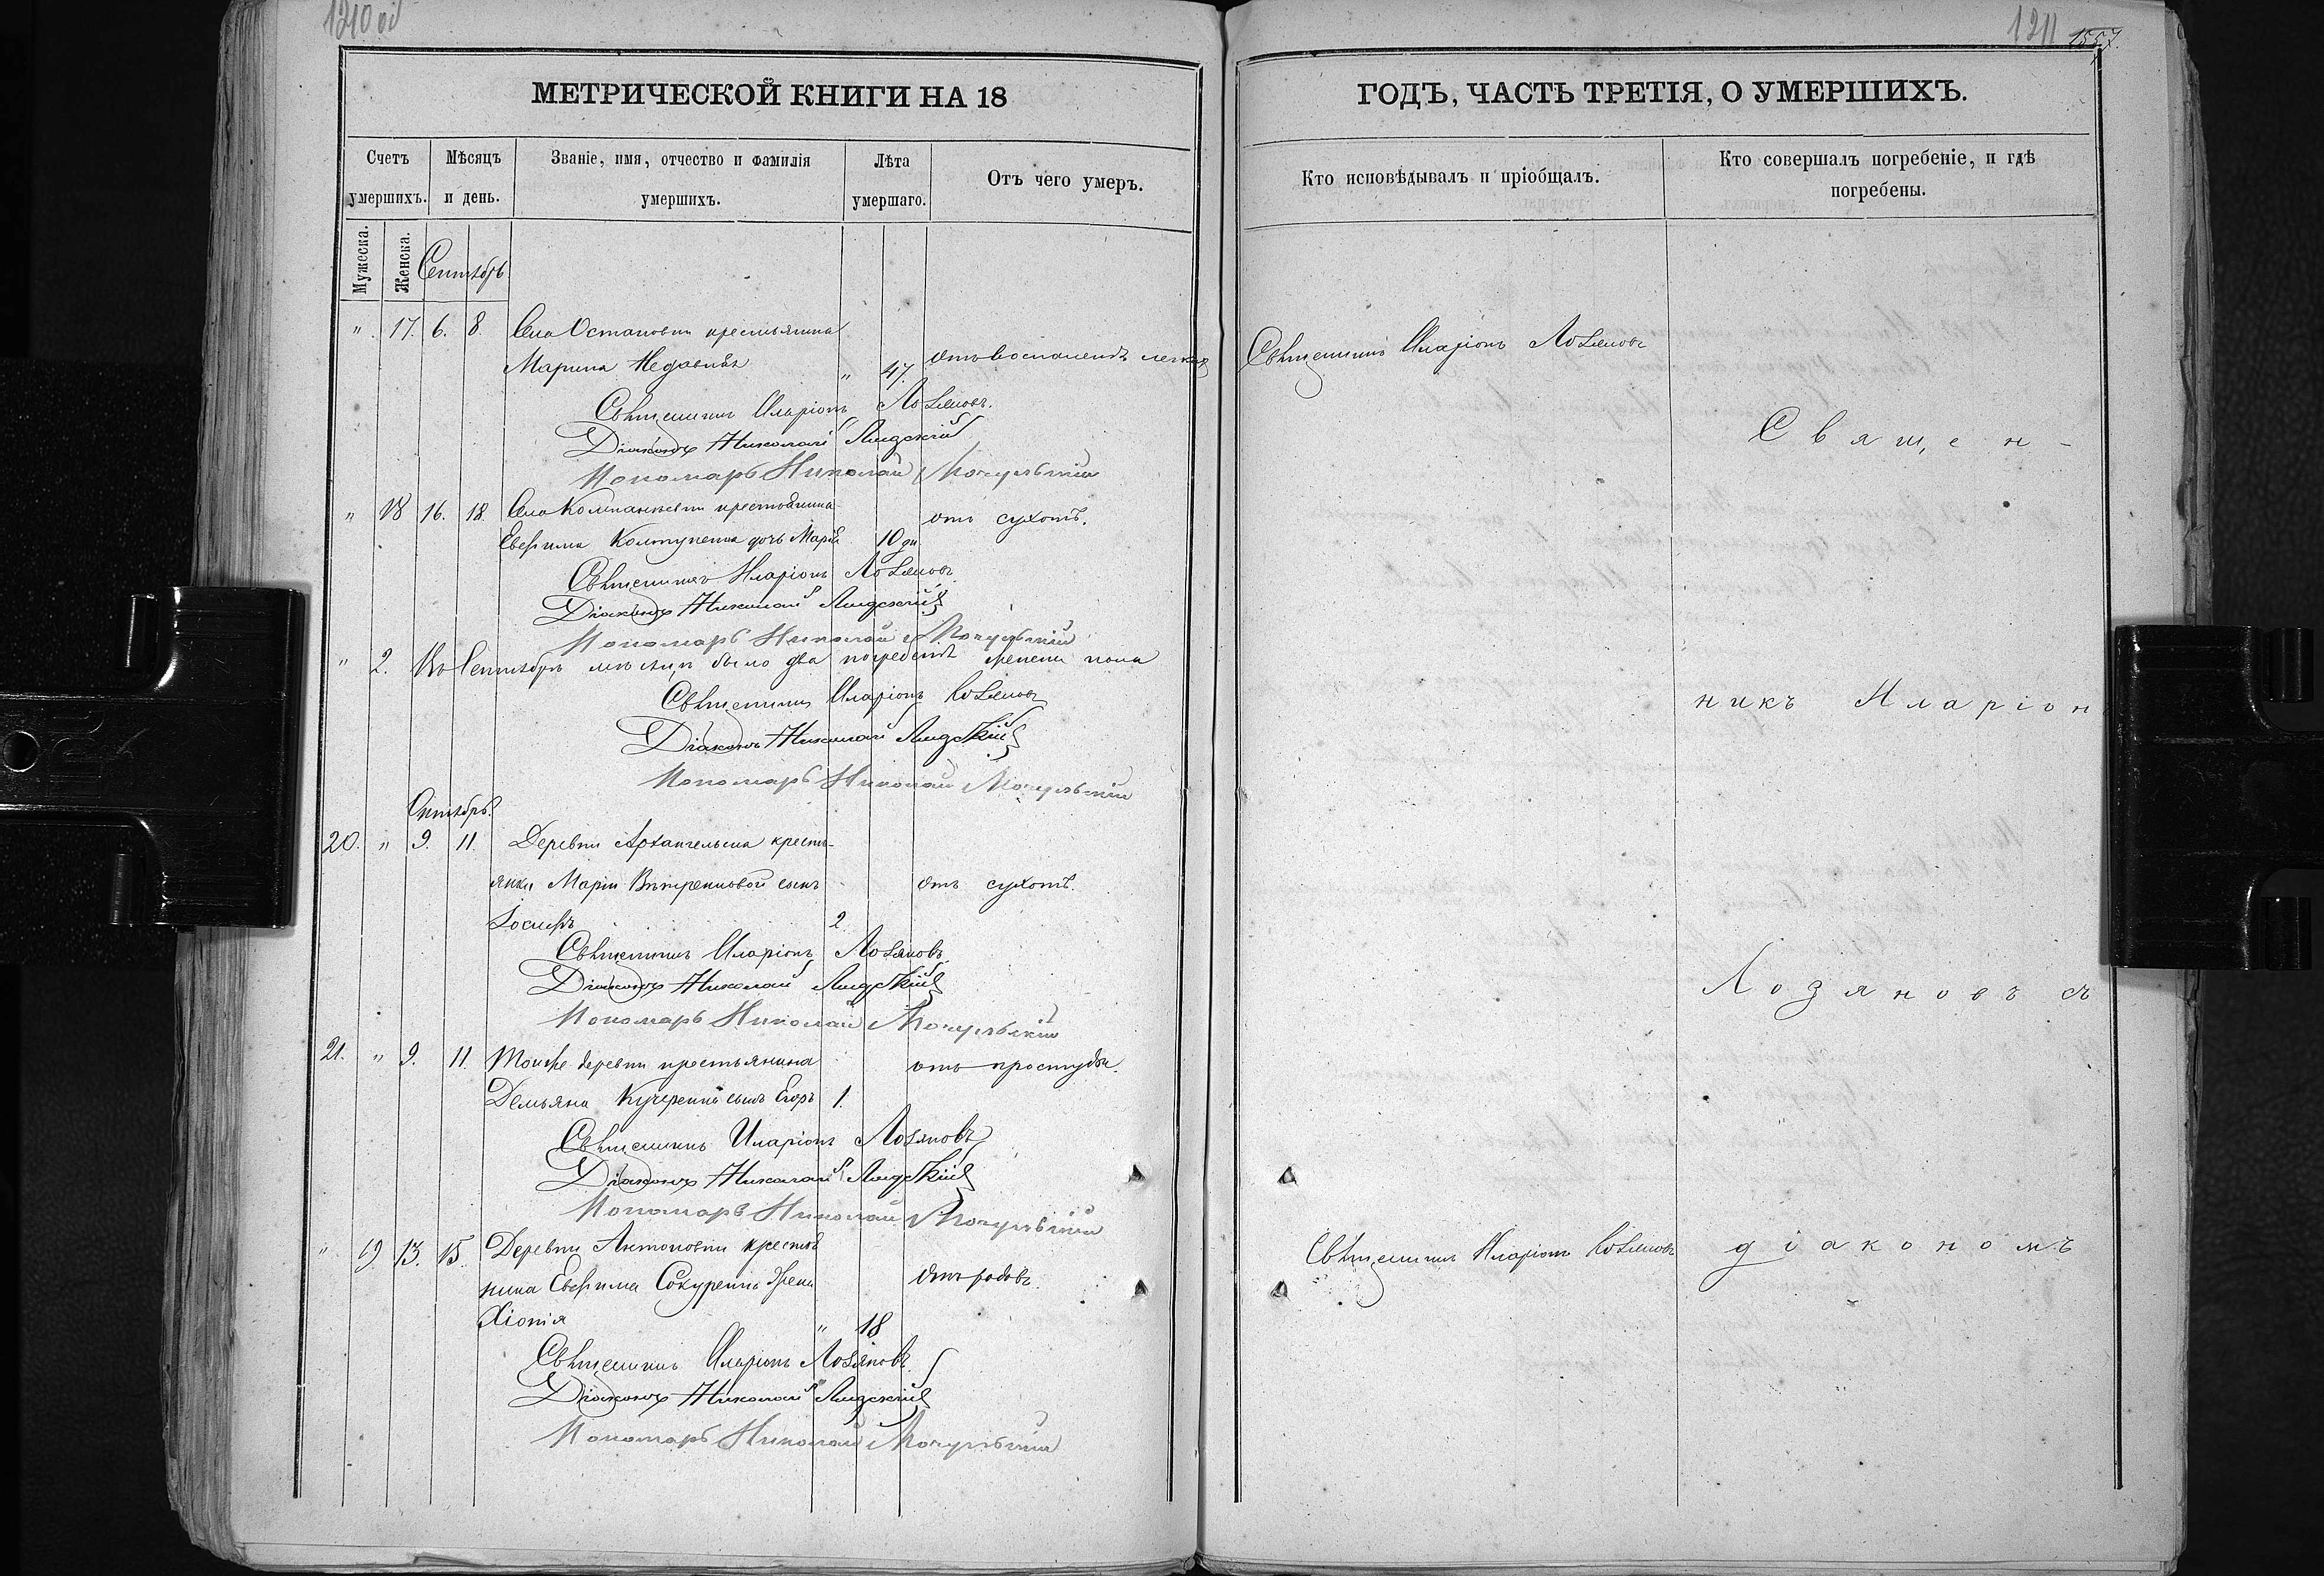 1210 об
1211
1557.
МЕТРИЧЕСКОЙ КНИГИ НА 18
Счетъ умершихъ.
Мѣсяцъ и день.
Званіе, имя, отчество и фамилія умершихъ.
Лѣта умершаго.
Отъ чего умеръ.
Мужеска.
Женска.
Сентябрь
" 17. 6. 8. Села Остаповки крестьянина
Марина " 47. отъ воспаленія легкихъ
Священникъ Иларіонъ Лозяновъ.
Діаконъ Николай Лидскій
Пономарь Николай Мочульскій
" 18 16. 18. Села Компанѣевки крестьянина отъ сухотъ.
Евфима Колтуненка дочь Марія 10 дн
Священникъ Иларіонъ Лозяновъ
Діаконъ Николай Лидскій
Пономарь Николай Мочульскій
" 2. Въ Сентябрѣ мѣсяцѣ было два погребенія женска пола
Священникъ Иларіонъ Лозяновъ
Діаконъ Николай Лидскій
Пономарь Николай Мочульскій
Октябрь.
20. " 9. 11. Деревни Архангельска кресть-
янки Маріи Вѣтренковой сынъ отъ сухотъ.
Іосифъ 2
Священникъ Иларіонъ Лозяновъ.
Діаконъ Николай Лидскій
Пономарь Николай Мочульскій
21. " 9. 11. Тойже деревни крестьянина отъ простуды.
Демьяна Кучеренка сынъ Егоръ 1.
Священникъ Иларіонъ Лозяновъ
Діаконъ Николай Лидскій
Пономарь Николай Мочульскій
" 19 13. 15. Деревни Антоновки крестья
нина Евфима Сокуренка жена отъ родовъ.
Хіонія " 18
Священникъ Иларіонъ Лозяновъ
Діаконъ Николай Лидскій
Пономарь Николай Мочульскій
ГОДЪ, ЧАСТЬ ТРЕТІЯ, О УМЕРШИХЪ.
Кто исповѣдывалъ и пріобщалъ.
Кто совершалъ погребеніе, и гдѣ
погребены.
Священникъ Иларіонъ Лозяновъ
Священ-
никъ Иларіон
Лозяновъ съ
Священникъ Иларіонъ Лозяновъ діакономъ